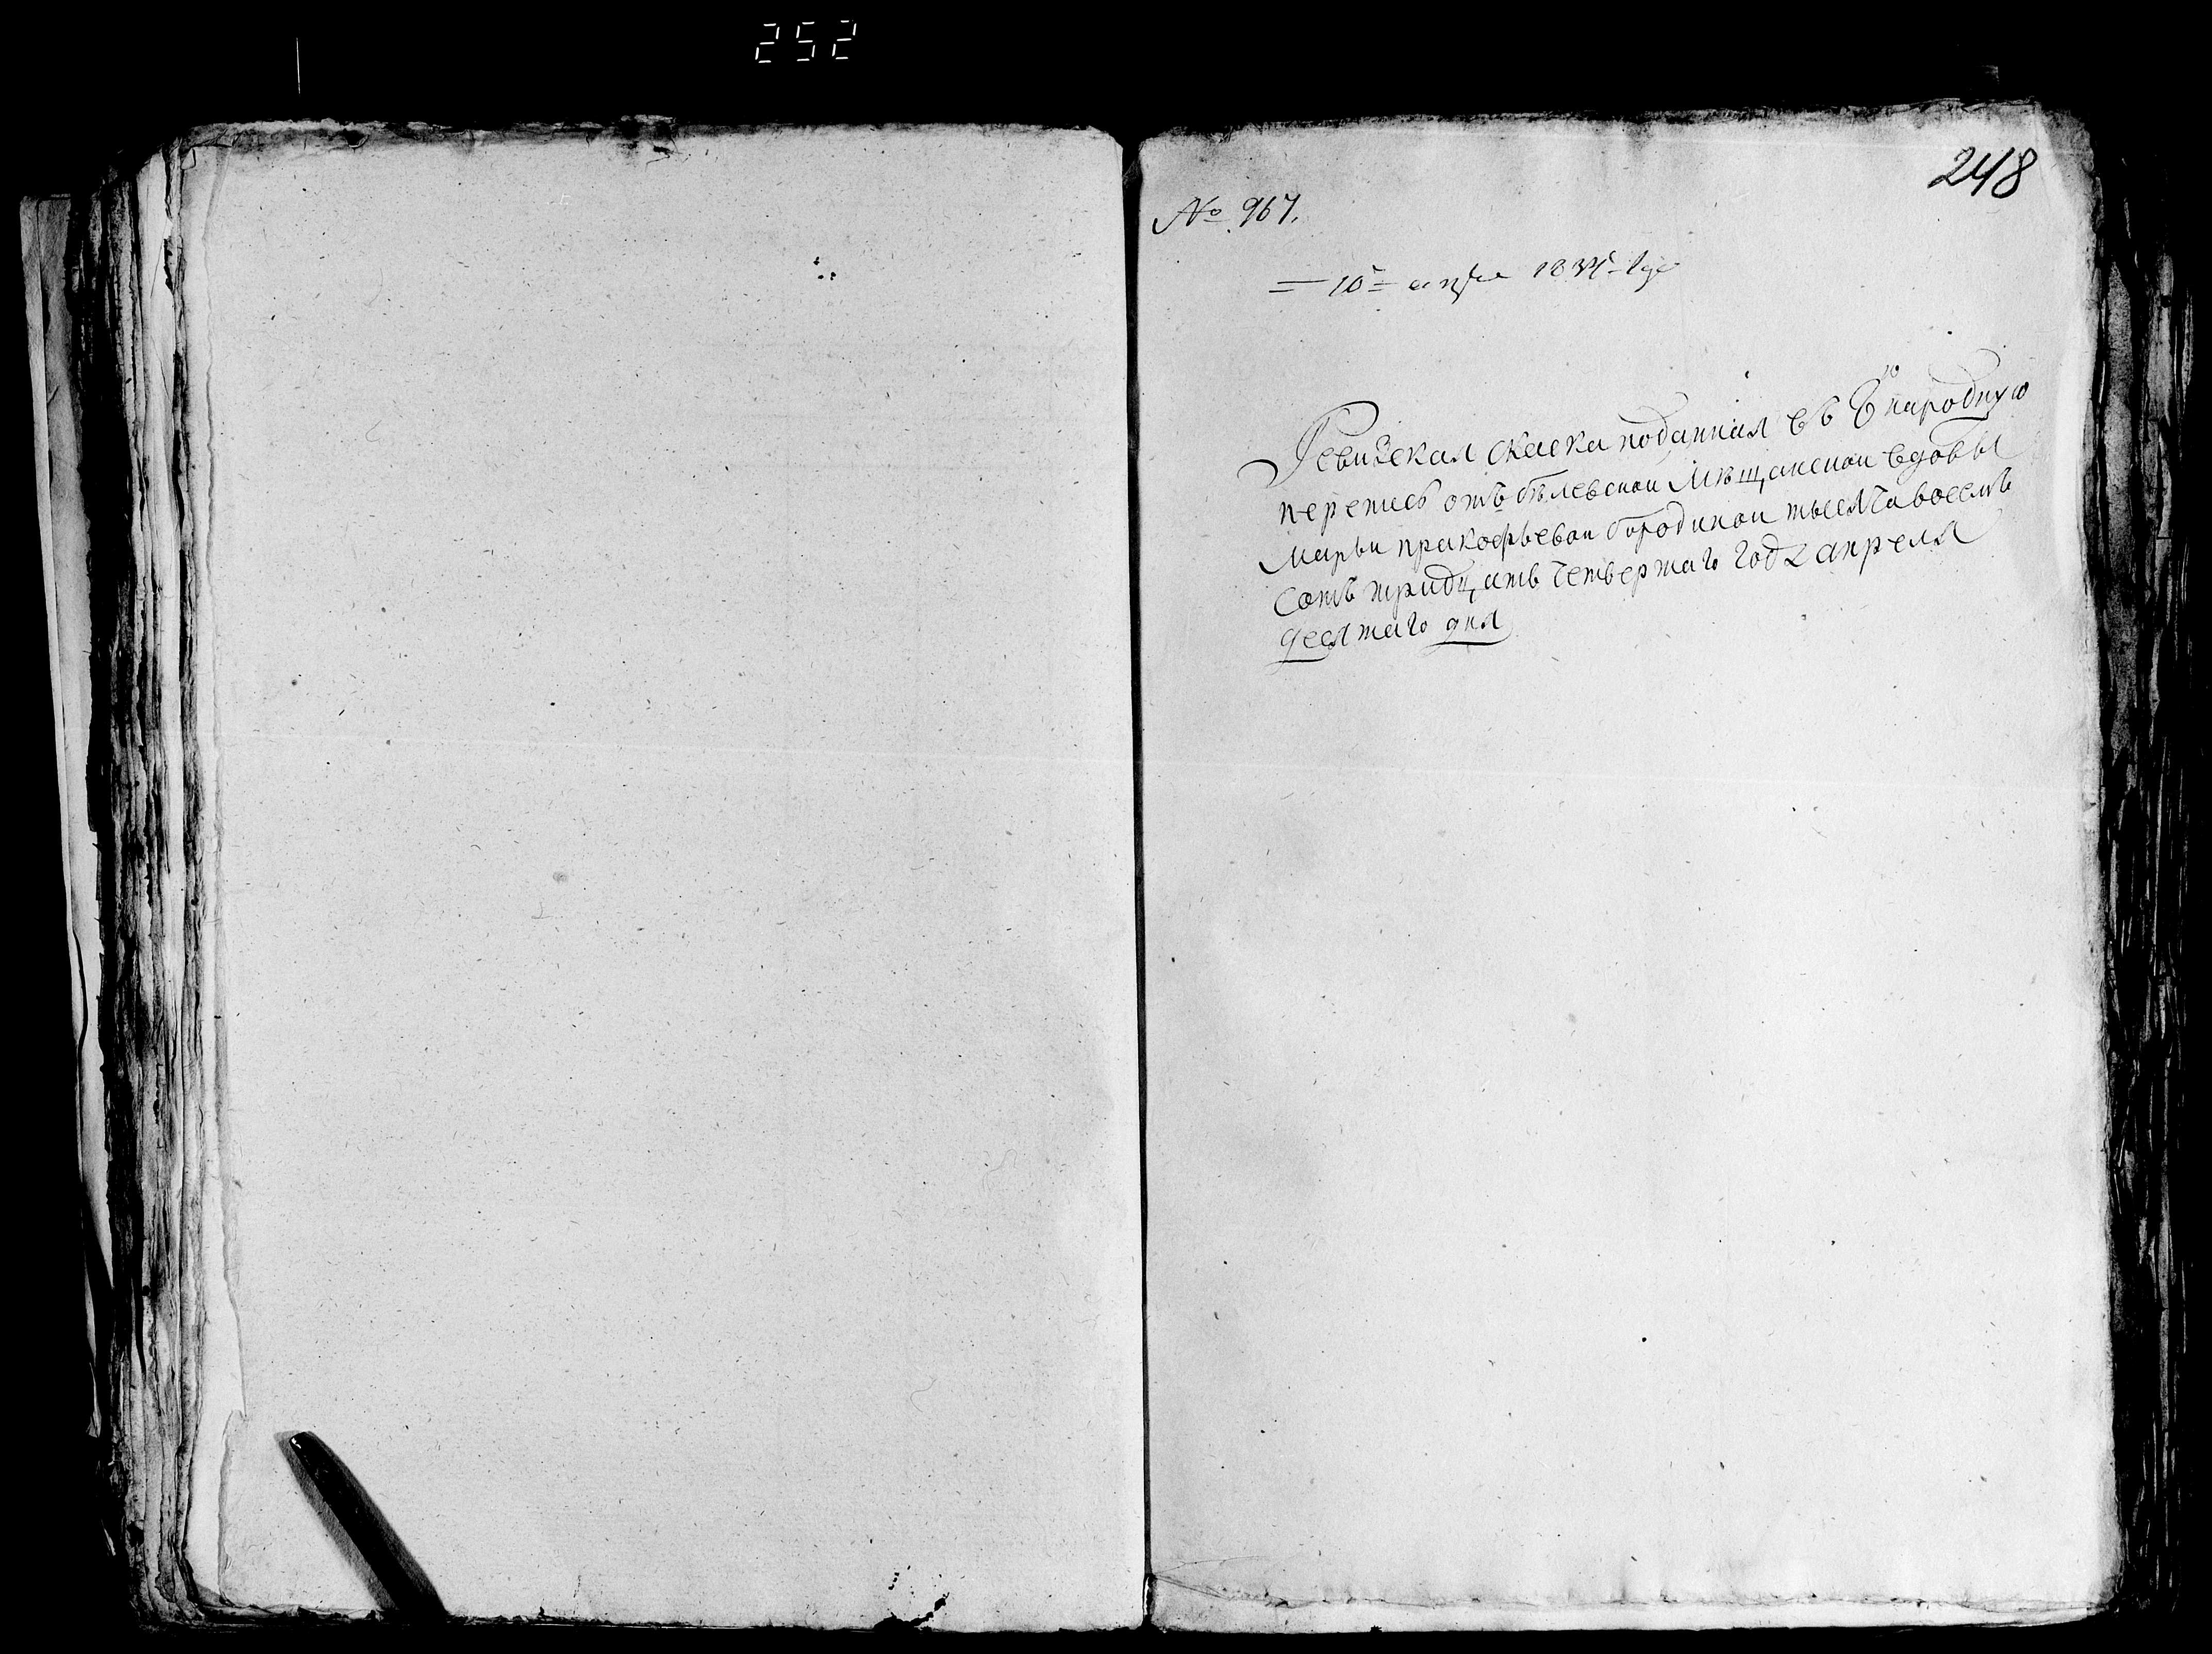 252
248
№ 967.
=10= апре 1834 году
Ревизская скаска поданная въ 8ю народную
перепись отъ бѣлевской мѣщанской вдовы
марьи пракофьевой бородиной тысяча восемь
сотъ тридцать четвертаго года апреля
десятаго дня